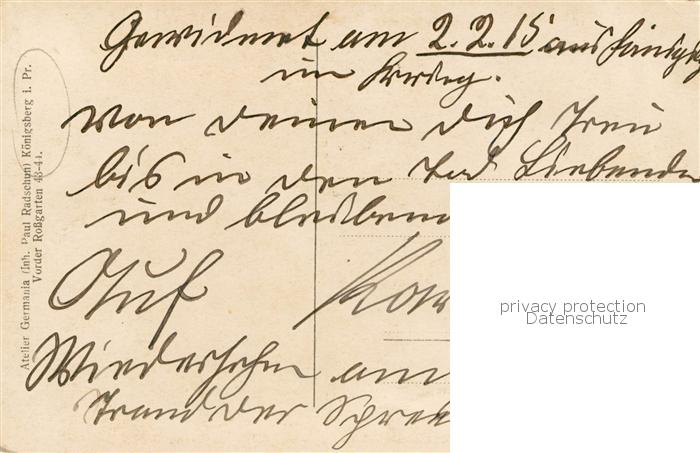 Gewidmet am 2.2.15 aus
im Krieg.
von deinen dich treu
bis in den Tod Liebenden
und bleibend
Auf
Wiedersehn am
Strand der Spree
Atelier Germania (Inh. Paul Radschun) Königsberg i. Pr.
Vorder Roßgarten 43-44.
privacy protection
Datenschutz